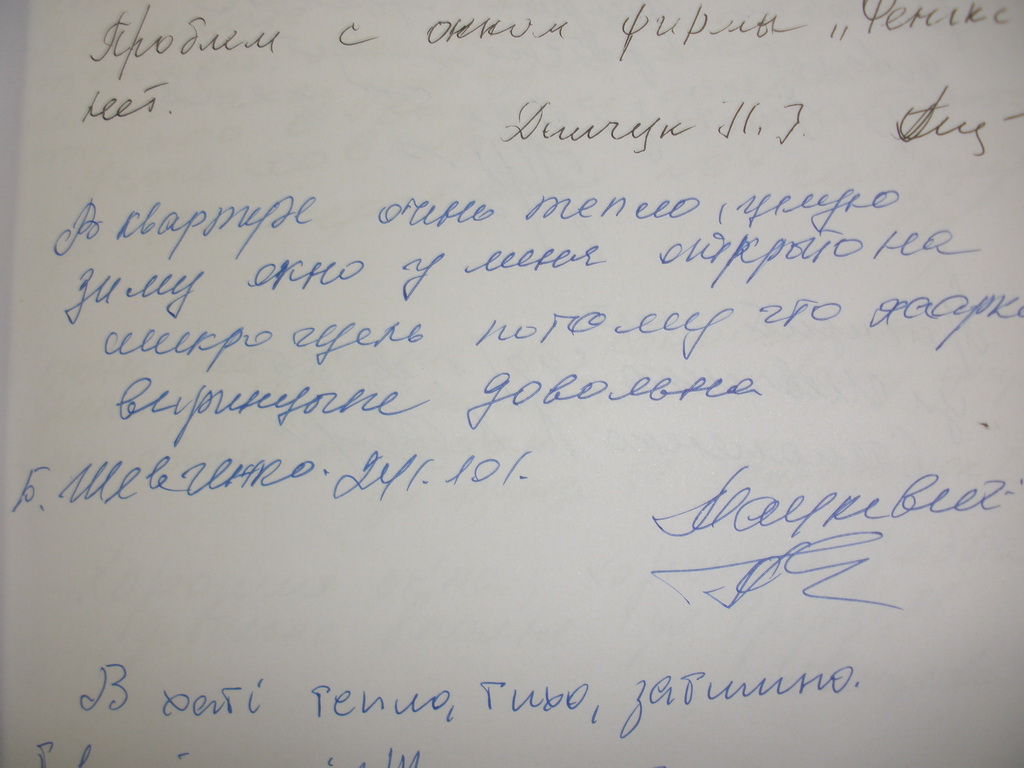 Проблем с окном фирмы „Фенікс
нет.
Димчук Н. З.
В квартире очинь тепло, целую
зиму окно у меня открыто на
микрощель потому что жарко
впринцыпе довольна
Б. Шевченко. 24/. 10/.
В хаті тепло, тихо, затишно.